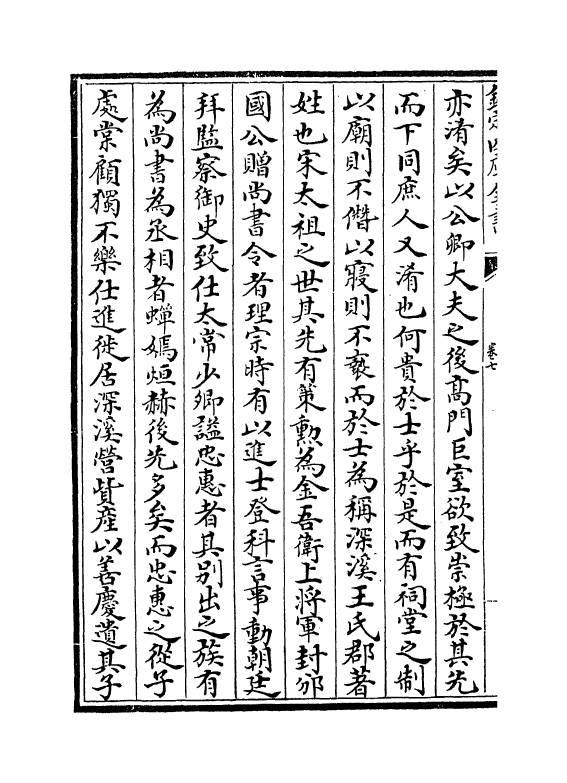 欽定四庫全書
卷七
亦淆矣以公卿大夫之後髙門巨室欲致崇極於其先
而下同庶人又淆也何貴於士乎於是而有祠堂之制
以廟則不僭以寢則不䙝而於士為稱深溪王氏郡著
姓也宋太祖之世其先有策勲為金吾衛上將軍封邠
國公贈尚書令者理宗時有以進士登科言事動朝廷
拜監察御史致仕太常少卿諡忠惠者其别出之族有
為尚書為丞相者蟬嫣烜赫後先多矣而忠惠之從子
處棠顧獨不樂仕進徙居深溪營貲產以善慶遺其子